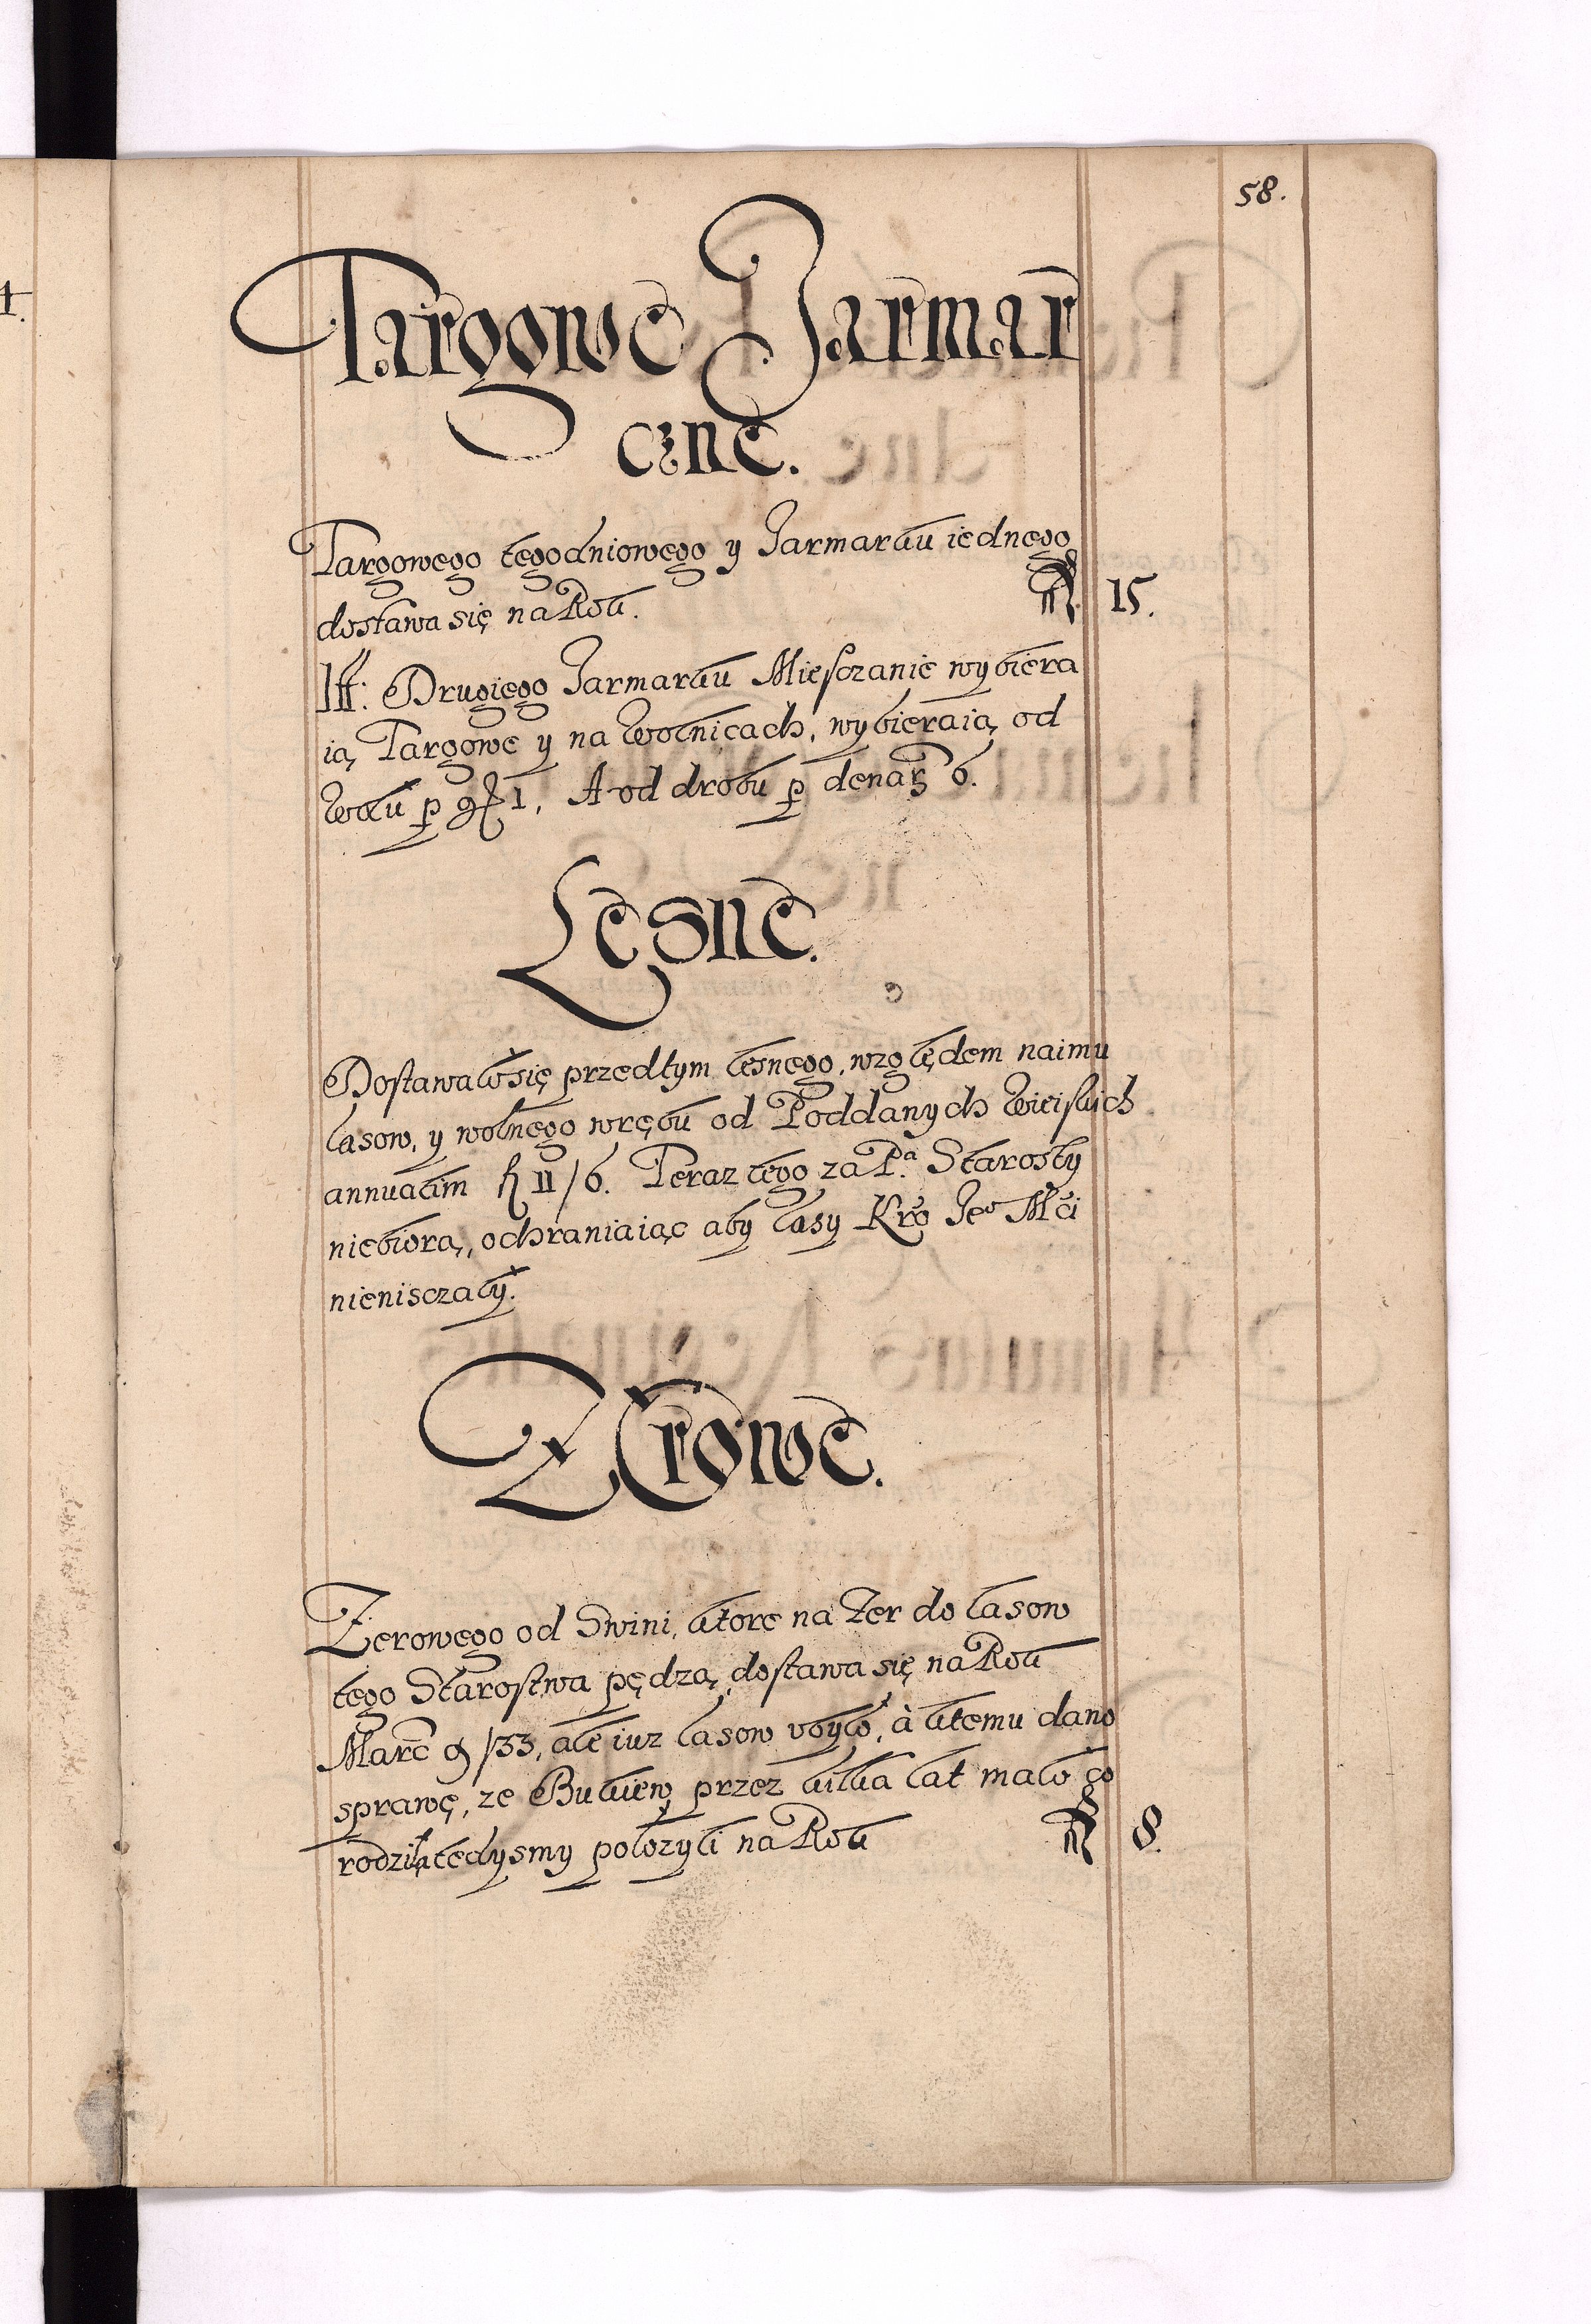 58.
Targowe Jarmar
czne.
Targowego tegodniowego y Jarmarku iednego
dostawa się na Rok. fl. 15.
Itt: Drugiego Jarmarku Miesczanie wybiera
ią Targowe y na Wolnicach, wybieraią od
Wołu p gr 1, A od drobu p denar 6.
Lesne.
Dostawało się przedtym lesnego, względem naimu
lasow, y wolnego wrębu od Poddanych Wieiskich
annuatim fl 11/6. Teraz tego za Pa. Starosty
niebiorą, ochraniaiąc aby lasy Kro Jeo Mci
nienisczały.
Zerowe.
Zerowego od Swini, ktore na Zer do lasow
tego Starostwa pędzą, dostawa się na Rok
Marc 9 /33, ale iuz lasow vbyło, à ktemu dano
sprawę, ze Bukiew przez kilka lat mało co
rodziła tedysmy położyli na Rok fl 8.